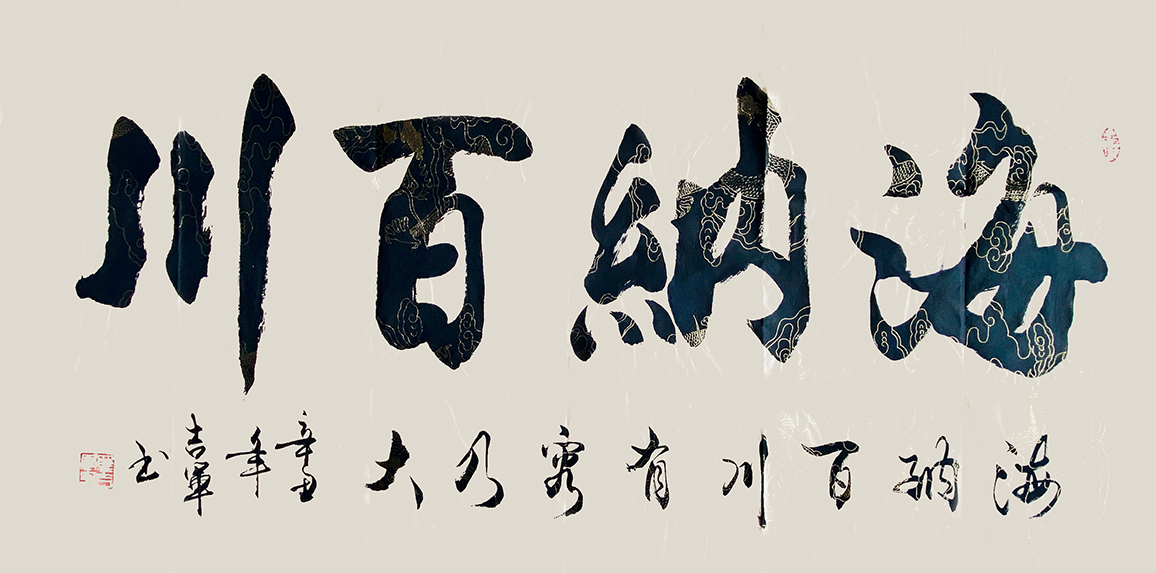 海納百川
海納百川有容乃大
辛丑
年
吉軍
书